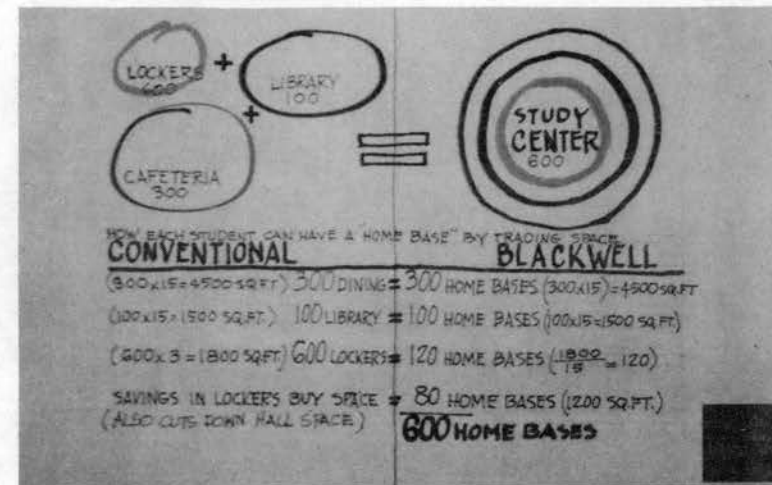 LOCKERS
600
+
LIBRARY
100
+
CAFETERIA
300
=
STUDY
CENTER
600
HOW EACH STUDENT CAN HAVE A HOME BASE" BY TRADING SPACE
CONVENTIONAL BLACKWELL
(300x15=4500 SQ.FT) 300 DINING = 300 HOME BASES (300x15)=4500 SQ.FT
(100x15=1500 SQ.FT.) 100 LIBRARY = 100 HOME BASES (100x15=1500 SQ.FT.)
(600x3=1800 SQ.FT.) 600 LOCKERS = 120 HOME BASES (1800/15=120)
SAVINGS IN LOCKERS BUY SPACE = 80 HOME BASES (1200 SQ.FT.)
(ALSO CUTS DOWN HALL SPACE)
600 HOME BASES